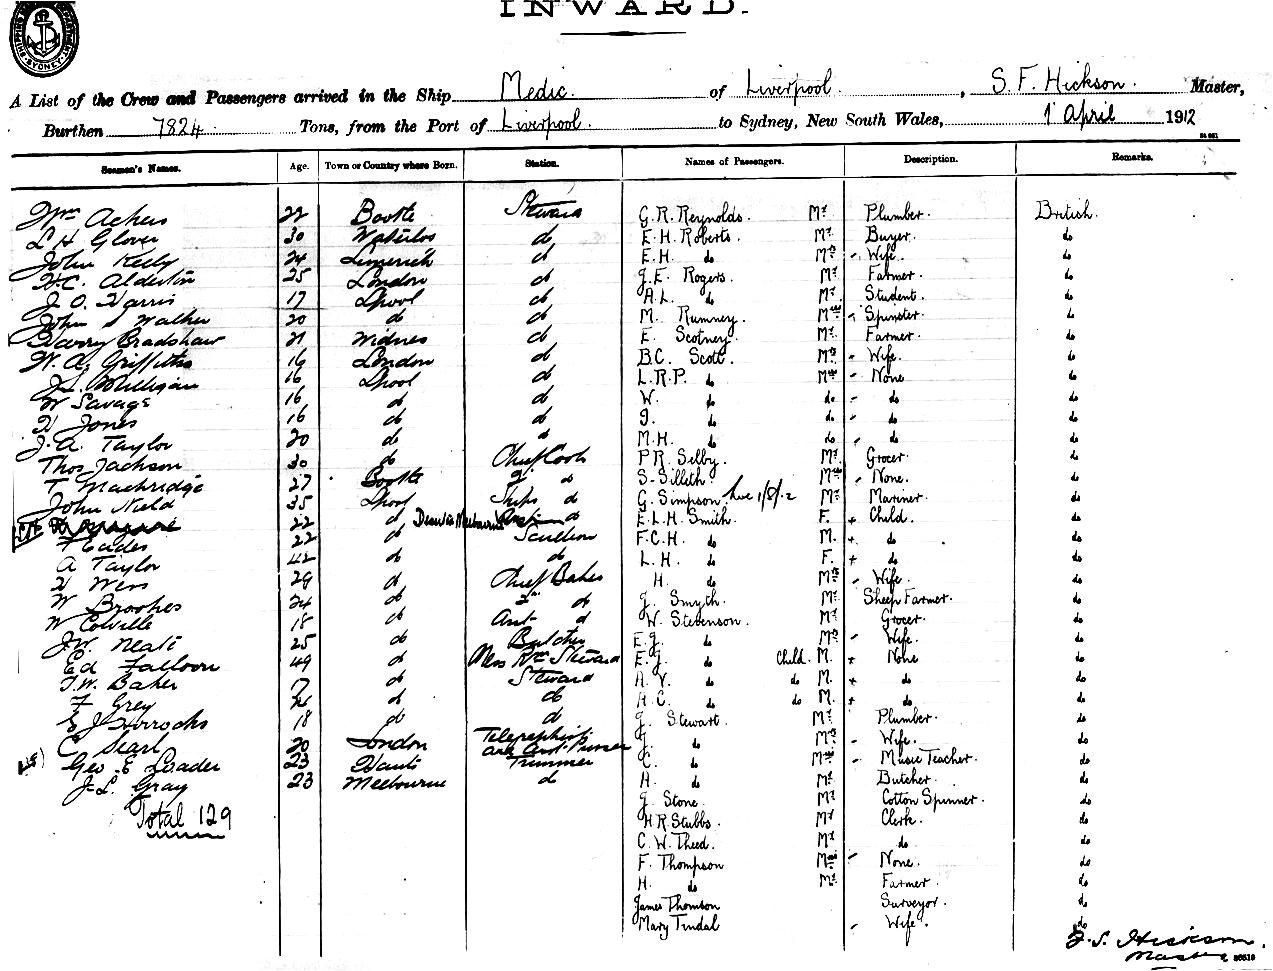 INWARD.
SYDNEY
A List of the Crew and Passengers arrived in the Ship Medic. of Liverpool. , S. F. Hickson. Master,
Burthen 7824 Tons, from the Port of Liverpool. to Sydney, New South Wales, 1 April 1912
Seamen's Names. Age. Town or Country where Born. Station. Names of Passengers. Description. Remarks.
Wm Achers 22 Bootle Steward G. R. Reynolds. Mr. Plumber. British.
L H Glover 30 Waterloo do E. H. Roberts. Mr. Buyer. do
John Kelly 24 Limerick do E. H. do Mrs - Wife. do
H. C. Alderton 25 London do J. E. Rogers. Mr. Farmer. do
J. O. Harris 17 Lpool do A. L. do Mr. Student. do
John S Walker 20 do do M. Rumney. Miss - Spinster. do
Harry Bradshaw 21 Widnes do E. Scotney. Mr. Farmer. do
W. A. Griffiths 16 London do B. C. Scott. Mrs - Wife. do
J. Milligan 16 Lpool do L. R. P. do Miss - None. do
W Savage 16 do do W. do do - do do
H Jones 16 do do J. do do - do do
J. A. Taylor 20 do do M. H. do do - do do
Thos Jackson 30 do Chief Cook P R. Selby. Mr. Grocer. do
T Mackridge 27 Bootle 2 do S. Silleth. Miss - None. do
John Nield 35 Lpool Ships do G. Simpson. Mr. Mariner. do
22 do do E. L. H. Smith. F. + Child. do
F Eades 22 do Scullion F. C. H. do M. + do do
A Taylor 42 do do L. H. do F. + do do
H Wers 29 do Chief Baker H. do Mrs - Wife. do
W Brookes 24 do 2nd do J. Smyth. Mr. Sheep Farmer. do
W Colville 18 do Asst do W. Stevenson. Mr. Grocer. do
J. W. Neate 25 do Butcher E. J. do Mrs - Wife. do
Ed Falloon 49 do Mess Rm Steward E. J. do Child. M. + None do
T. W. Baker do Steward A. V. do do M. + do do
F Grey do do A. C. do do M. + do do
E J Horrocks 18 do do J. Stewart. Mr. Plumber. do
C Searl 20 London Telegraphist and Asst Purser J. do Mrs - Wife. do
Geo E Loader 23 Hants Trimmer C. do Miss - Music Teacher. do
J. L. Gray 23 Melbourne do H. do Mr. Butcher. do
Total 129 J. Stone. Mr. Cotton Spinner. do
H R Stubbs. Mr. Clerk. do
C. W. Theed. Mr. do do
F. Thompson Miss - None. do
H. do Mr. Farmer. do
James Thomson Surveyor. do
Mary Tindal - Wife. do
Hickson.
Master